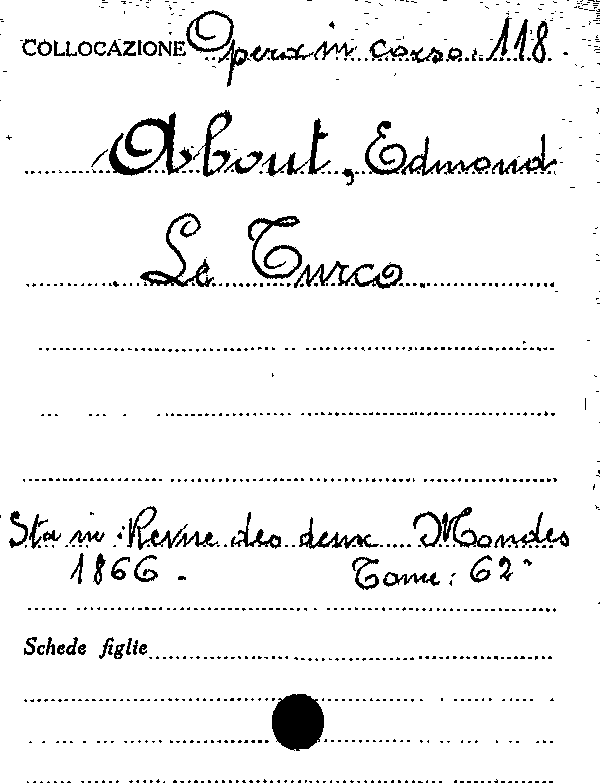 COLLOCAZIONE Opera in corso. 118.
About, Edmond
Le Turco.
Sta in: Revue des deux Mondes
1866. Tome: 62°
Schede figlie